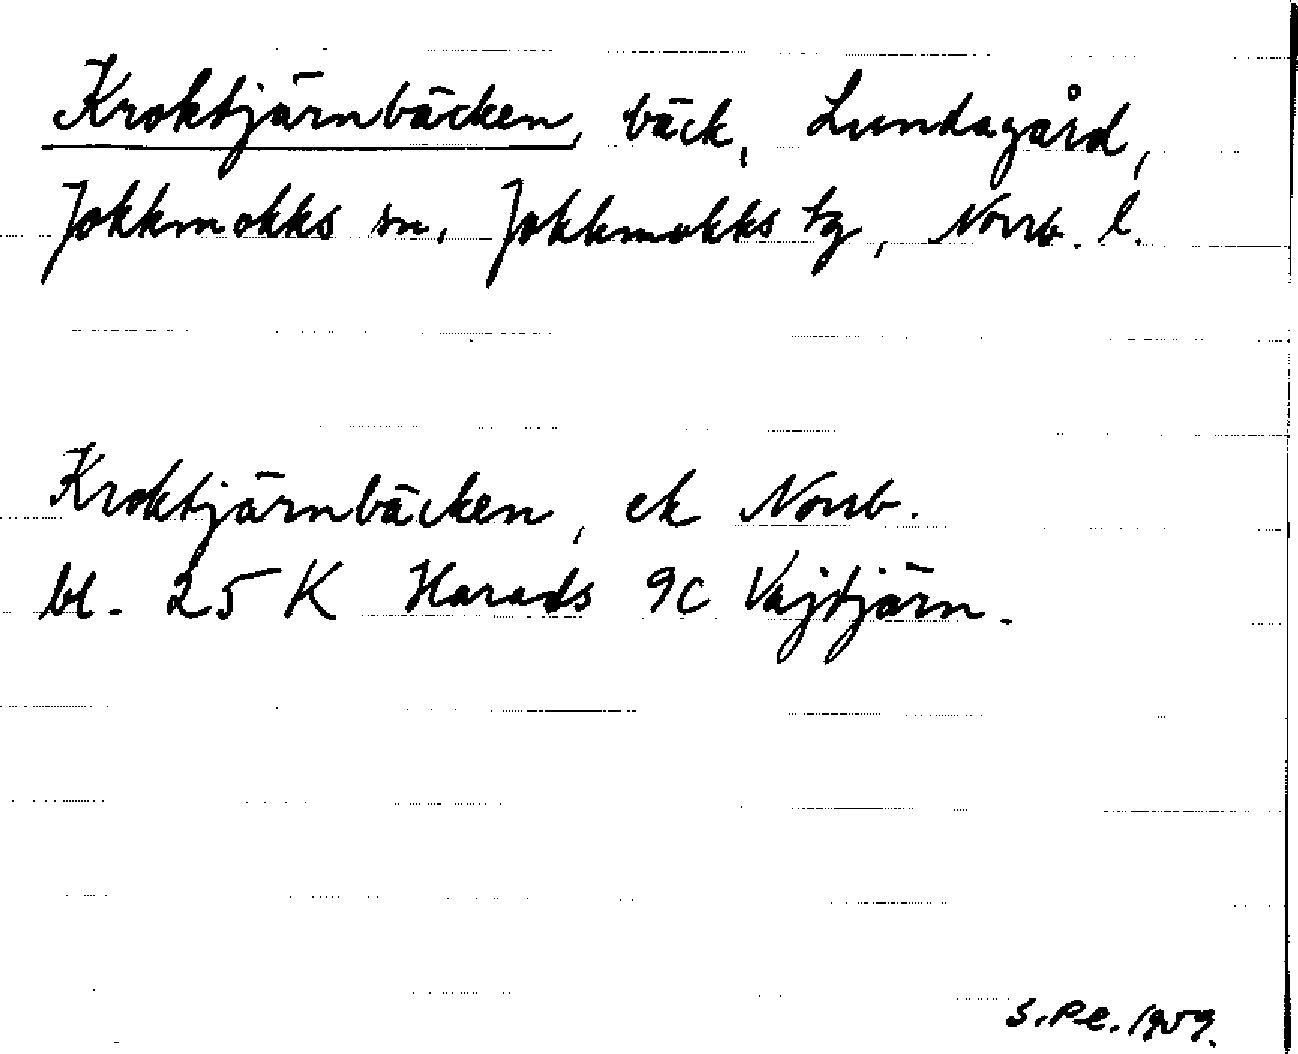 Kroktjärnbäcken, bäck, Lundagård,
Jokkmokks sn, Jokkmokks tg, Norrb. l.
Kroktjärnbäcken, ek Norrb.
bl. 25 K Harads 9c Vajtjärn.
S. Pe. 1959.